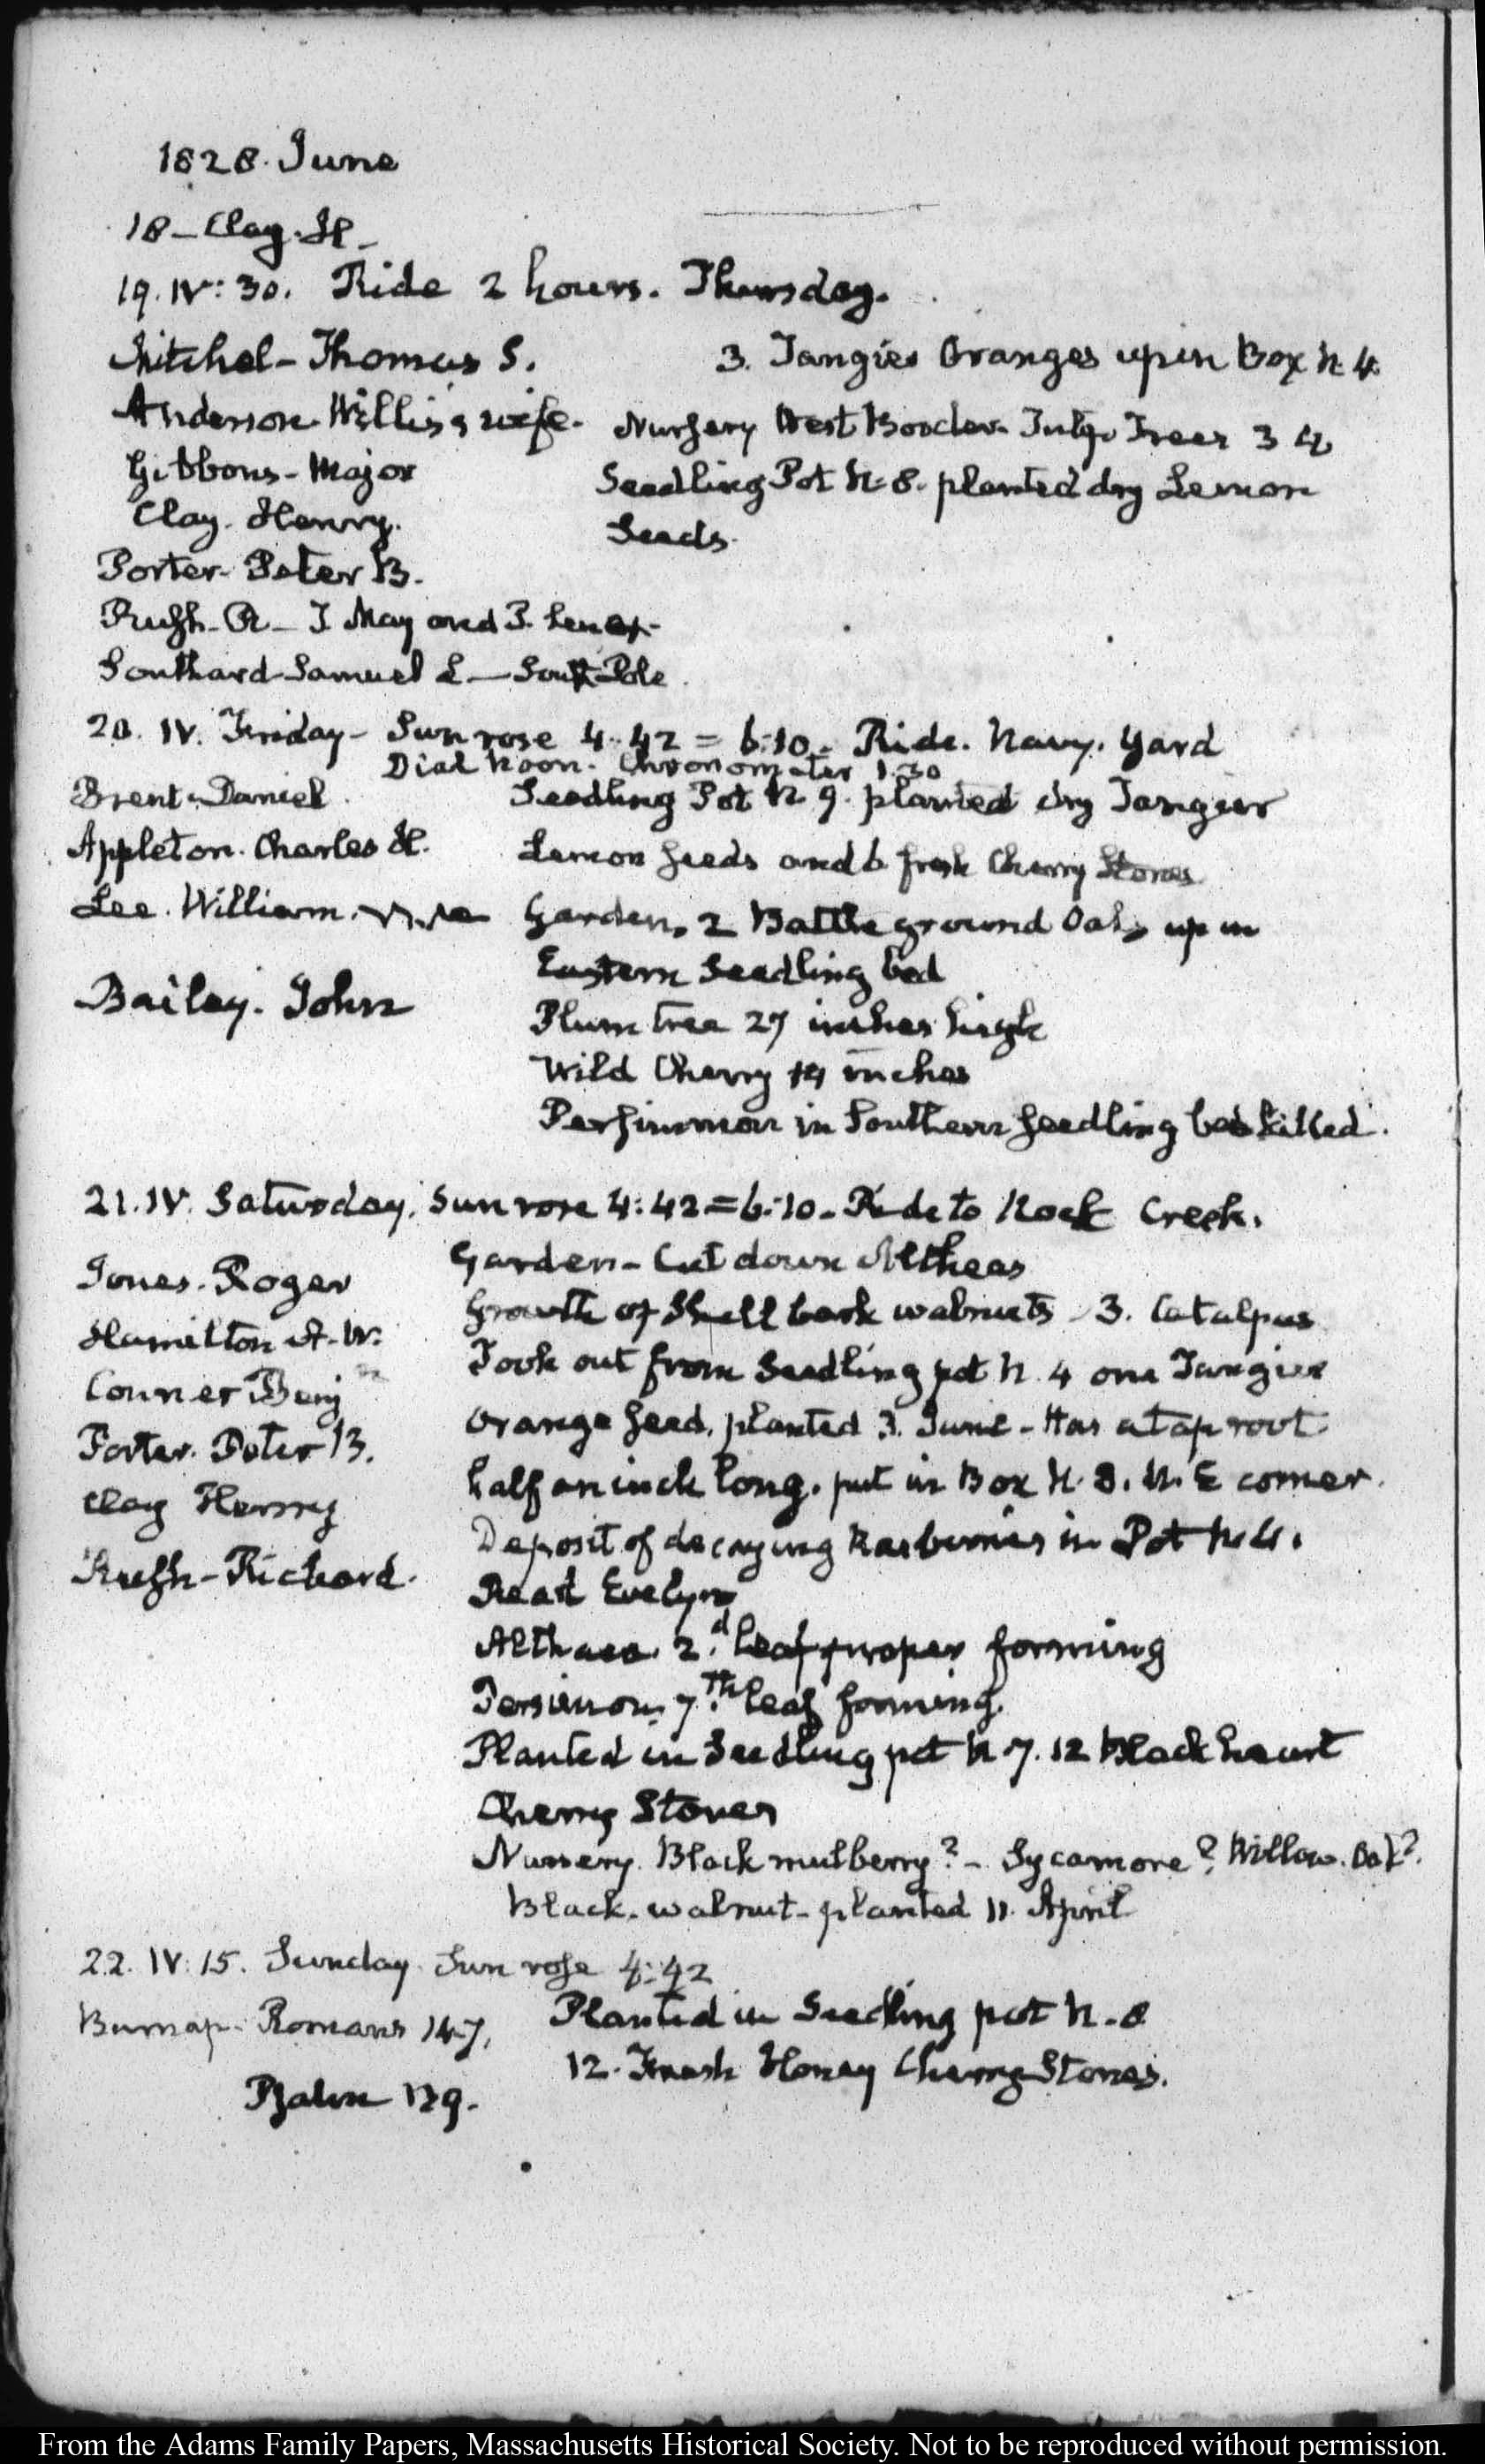 1828. June
18 – Clay. H –
19. IV: 30. Ride 2 hours. Thursday.
Mitchel – Thomas S.
3. Tangier Oranges up in Box N. 4.
Anderson. Willis's wife.
Nursery West Border. Tulip Trees 3 4
Gibbons – Major
Seedling Pot N. 8. planted dry Lemon
Clay. Henry.
Seeds.
Porter – Peter B.
Rush – R – J May and P. Lenox –
Southard Samuel L – South Pole
20. IV. Friday – Sun rose 4:42 = 6:10. Ride. Navy. Yard
Dial Noon. Chronometer 1.30
Brent. Daniel.
Seedling Pot N 9. planted dry Tangier
Appleton. Charles H.
Lemon seeds and 6 fresh Cherry Stones
Lee. William.
Garden, 2 Battle ground Oaks up in
Eastern Seedling bed
Bailey. John
Plum tree 27 inches high
Wild Cherry 14 inches
Persimmon in Southern seedling bed killed.
21. IV. Saturday. Sun rose 4:42 = 6:10. Ride to Rock Creek.
Garden – Cut down Altheas
Jones. Roger
Growth of Shell bark walnuts 3. Catalpas
Hamilton A. W.
Took out from Seedling pot N. 4 one Tangier
Conner Benj
Orange seed, planted 3. June – Has a tap root
Porter. Peter B.
half an inch long. put in Box N. 3. N. E corner.
Clay Henry
Deposit of decaying Rasberries in Pot N. 4.
Rush – Richard.
Read Evelyn
Althaea. 2d. leaf proper forming
Persimon, 7th. leaf forming.
Planted in Seedling pot N 7. 12 black heart
Cherry Stones
Nursery. Black mulberry? – Sycamore? Willow. Oak?.
Black. walnut – planted 11. April
22. IV: 15. Sunday Sun rose 4:42
Planted in Seedling pot N. 8
Burnap – Romans 14.7.
12. Fresh Honey Cherry Stones.
Psalm 139.
From the Adams Family Papers, Massachusetts Historical Society. Not to be reproduced without permission.